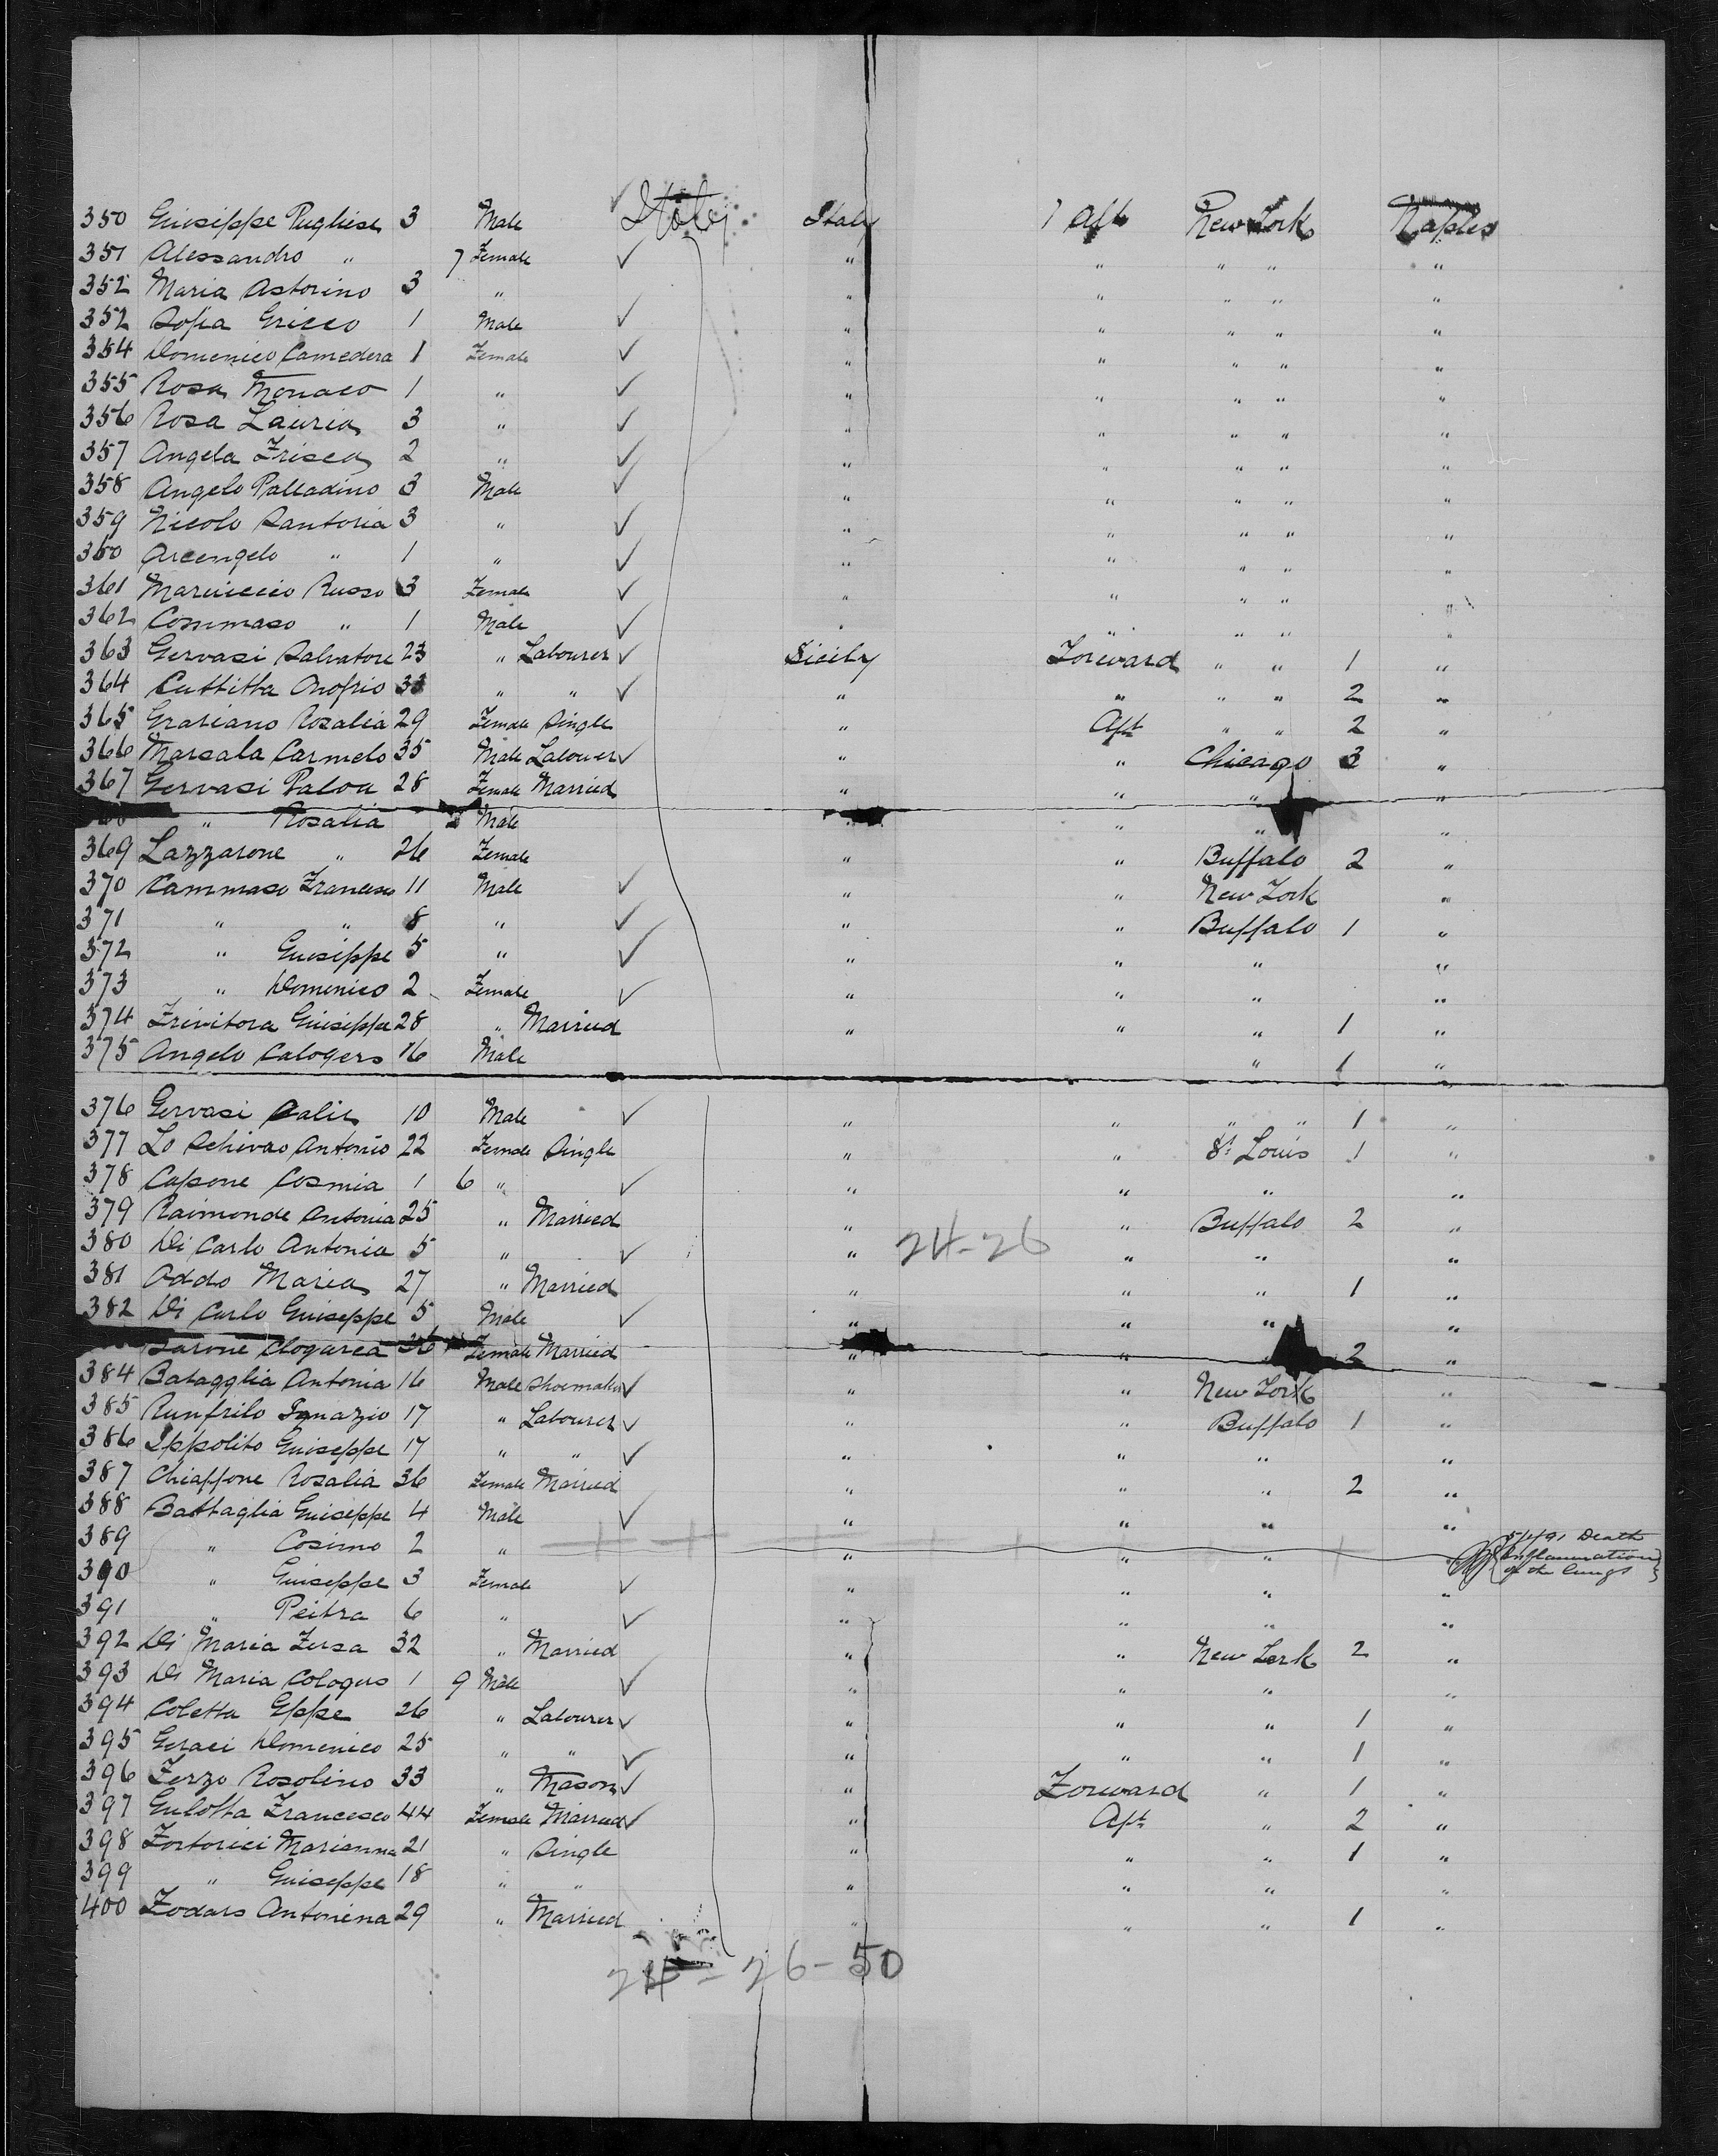 350 Giuseppe Pugliese 3 Male Italy Italy 1 Aft New York Naples
351 Alessandro " 7 Female " " " " "
352 Maria Astorino 3 " " " " " "
352 Sofia Grieco 1 Male " " " " "
354 Domenico Camedera 1 Female " " " " "
355 Rosa Monaco 1 " " " " " "
356 Rosa Lauria 3 " " " " " "
357 Angela Frisca 2 " " " " " "
358 Angelo Palladino 3 Male " " " " "
359 Nicolo Santoria 3 " " " " " "
360 Arcengelo " 1 " " " " " "
361 Russo 3 Female " " " " "
362 Tommaso " 1 Male " " " " "
363 Gervasi Salvatore 23 " Labourer Sicily Forward " " 1 "
364 Cuttitta Onofrio 33 " " " " " " 2 "
365 Grasiano Rosalia 29 Female Single " Aft " " 2 "
366 Marsala Carmelo 35 Male Labourer " " Chicago 3 "
367 Gervasi Palou 28 Female Married " " " "
" Rosalia Male " " " "
369 Lazzarone " 26 Female " " Buffalo 2 "
370 Cammaso Francesco 11 Male " " New York "
371 " " 8 " " " Buffalo 1 "
372 " Guiseppe 5 " " " " "
373 " Domenico 2 Female " " " "
374 Trivitora Guiseppe 28 " Married " " " 1 "
375 Angelo Calogero 16 Male " 1 "
376 Gervasi Salie 10 Male " " " " 1 "
377 Lo Schivao Antonio 22 Female Single " " St Louis 1 "
378 Capone Cosmia 1 6 " " " " "
379 Raimonde Antonia 25 " Married " " Buffalo 2 "
380 Di Carlo Antonia 5 " " 24-26 " " "
381 Oddo Maria 27 " Married " " " 1 "
382 Di Carlo Guiseppe 5 Male " " " "
Sarone Clogarea 36 Female Married " " 2 "
384 Batagglia Antonia 16 Male Shoemaker " " New York "
385 Runfrilo Ignazio 17 " Labourer " " Buffalo 1 "
386 Ippolito Guiseppe 17 " " " " " "
387 Chiappone Rosalia 36 Female Married " " " 2 "
388 Battaglia Guiseppe 4 Male " " " "
389 " Cosimo 2 " " " " " Death Inflammation of the lungs
390 " Guiseppe 3 Female " " " "
391 " Peitra 6 " " " " "
392 Di Maria Tersa 32 " Married " " New York 2 "
393 Di Maria Cologus 1 9 Male " " " "
394 Coletta Gppe 26 " Labourer " " " 1 "
395 Geraci Domenico 25 " " " " " 1 "
396 Terzo Rosolino 33 " Mason " Forward " 1 "
397 Gulotta Francesco 44 Female Married " Aft " 2 "
398 Tortorici Marianna 21 " Single " " " 1 "
399 " Guiseppe 18 " " " " " "
400 Todaro Antonina 29 " Married " " " 1 "
24-26-50